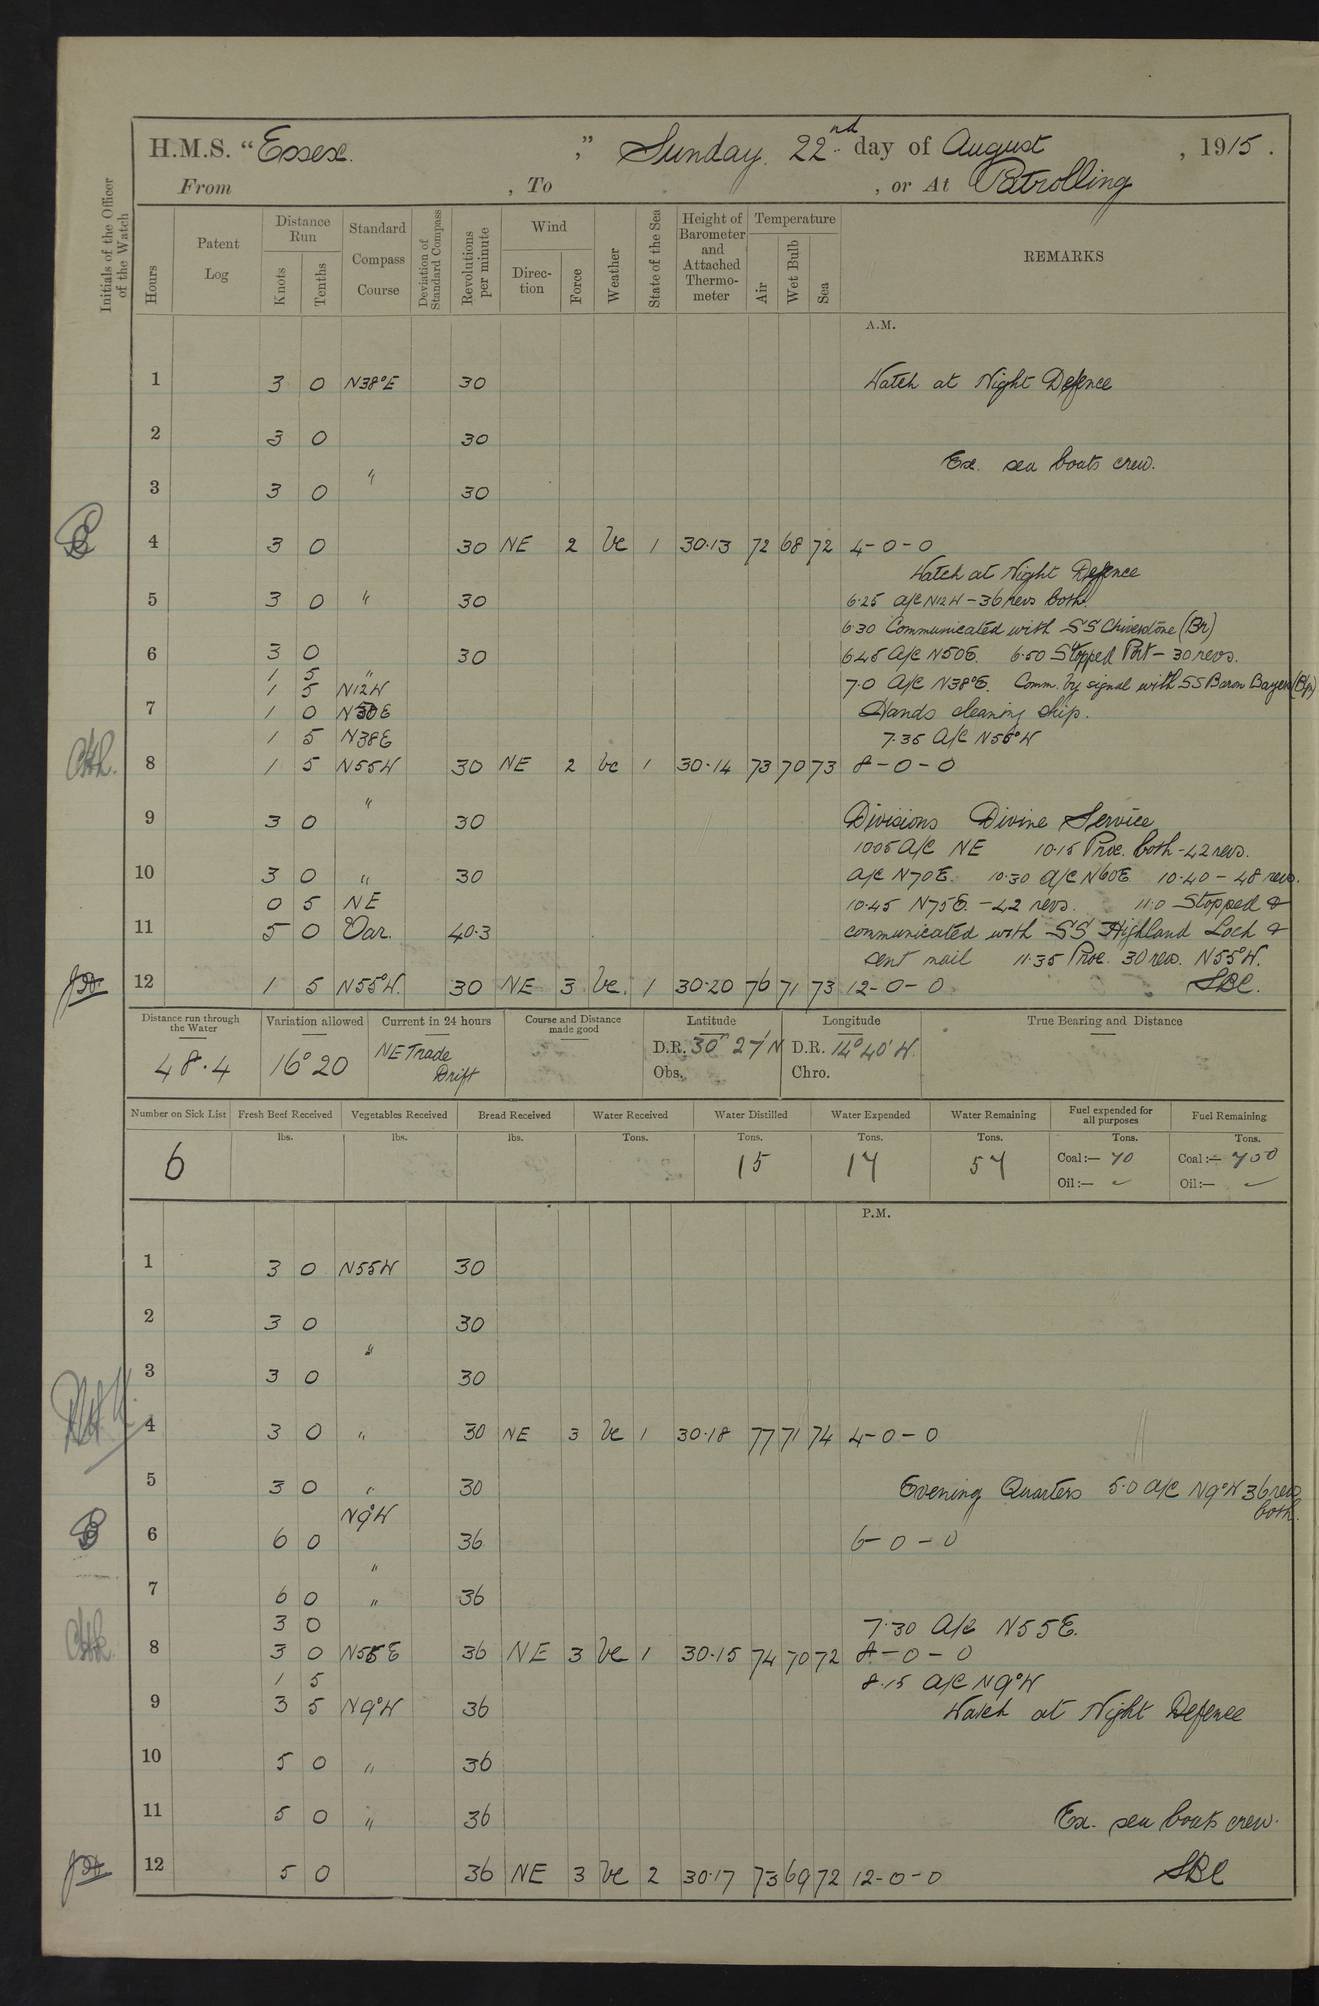 H.M.S. "Essex." Sunday 22nd day of August, 1915.
From , To , or At Patrolling
Initials of the Officer of the Watch
Hours
Patent Log
Distance Run
Knots
Tenths
Standard Compass Course
Deviation of Standard Compass
Revolutions per minute
Wind
Direction
Force
Weather
State of the Sea
Height of Barometer and Attached Thermometer
Temperature
Air
Wet Bulb
Sea
REMARKS
A.M.
1 3 0 N38°E 30 Watch at Night Defence
2 3 0 30
Ex. sea boats crew.
3 3 0 " 30
4 3 0 30 NE 2 bc 1 30.13 72 68 72 4-0-0
Watch at Night Defence
5 3 0 " 30 6.25 a/c N12W - 36 revs both.
6.30 Communicated with SS Chiverstone (Br)
6 3 0 30 6.45 A/c N50E. 6.50 Stopped Port - 30 revs.
1 5 "
1 5 N12W 7.0 A/c N38°E. Comm. by signal with SS Baron
7 1 0 N50E Hands cleaning ship.
1 5 N38E 7.35 A/c N55°W
8 1 5 N55W 30 NE 2 bc 1 30.14 73 70 73 8-0-0
9 3 0 " 30 Divisions Divine Service
10.05 A/c NE 10.15 Proc. both - 42 revs.
10 3 0 " 30 A/c N70E. 10.30 A/c N60E 10.40 - 48 revs.
0 5 NE 10.45 N75E. - 42 revs. 11.0 Stopped &
11 5 0 Var. 40.3 communicated with SS Highland Loch &
sent mail 11.35 Proc. 30 revs. N55°W.
12 1 5 N55°W. 30 NE 3 bc. 1 30.20 76 71 73 12-0-0 SBC.
Distance run through the Water
Variation allowed
Current in 24 hours
Course and Distance made good
Latitude
Longitude
True Bearing and Distance
48.4 16°20 NE Trade Drift D.R. 30° 27' N D.R. 14° 40' W.
Obs. Chro.
Number on Sick List
Fresh Beef Received
Vegetables Received
Bread Received
Water Received
Water Distilled
Water Expended
Water Remaining
Fuel expended for all purposes
Fuel Remaining
lbs. lbs. lbs. Tons. Tons. Tons. Tons. Tons. Tons.
6 15 17 57 Coal:— 70 Coal:— 700
Oil:— ✓ Oil:— ✓
P.M.
1 3 0 N55W 30
2 3 0 30
3 3 0 " 30
4 3 0 " 30 NE 3 bc 1 30.18 77 71 74 4-0-0
5 3 0 " 30 Evening Quarters 5.0 a/c N9°W 36 revs both.
N9°W
6 6 0 36 6-0-0
"
7 6 0 " 36
3 0 7.30 A/c N55E.
8 3 0 N55E 36 NE 3 bc 1 30.15 74 70 72 8-0-0
1 5 8.15 A/c N9°W
9 3 5 N9°W 36 Watch at Night Defence
10 5 0 " 36
11 5 0 " 36 Ex. sea boats crew.
12 5 0 36 NE 3 bc 2 30.17 73 69 72 12-0-0 SBC